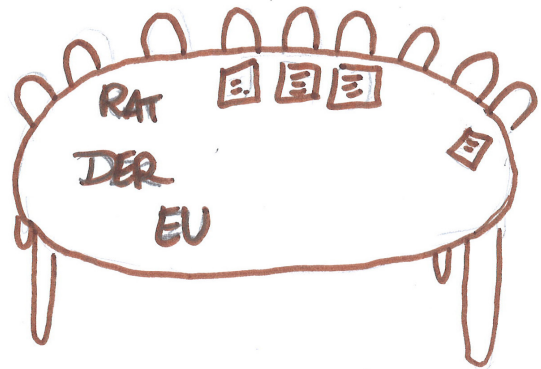 RAT
DER
EU